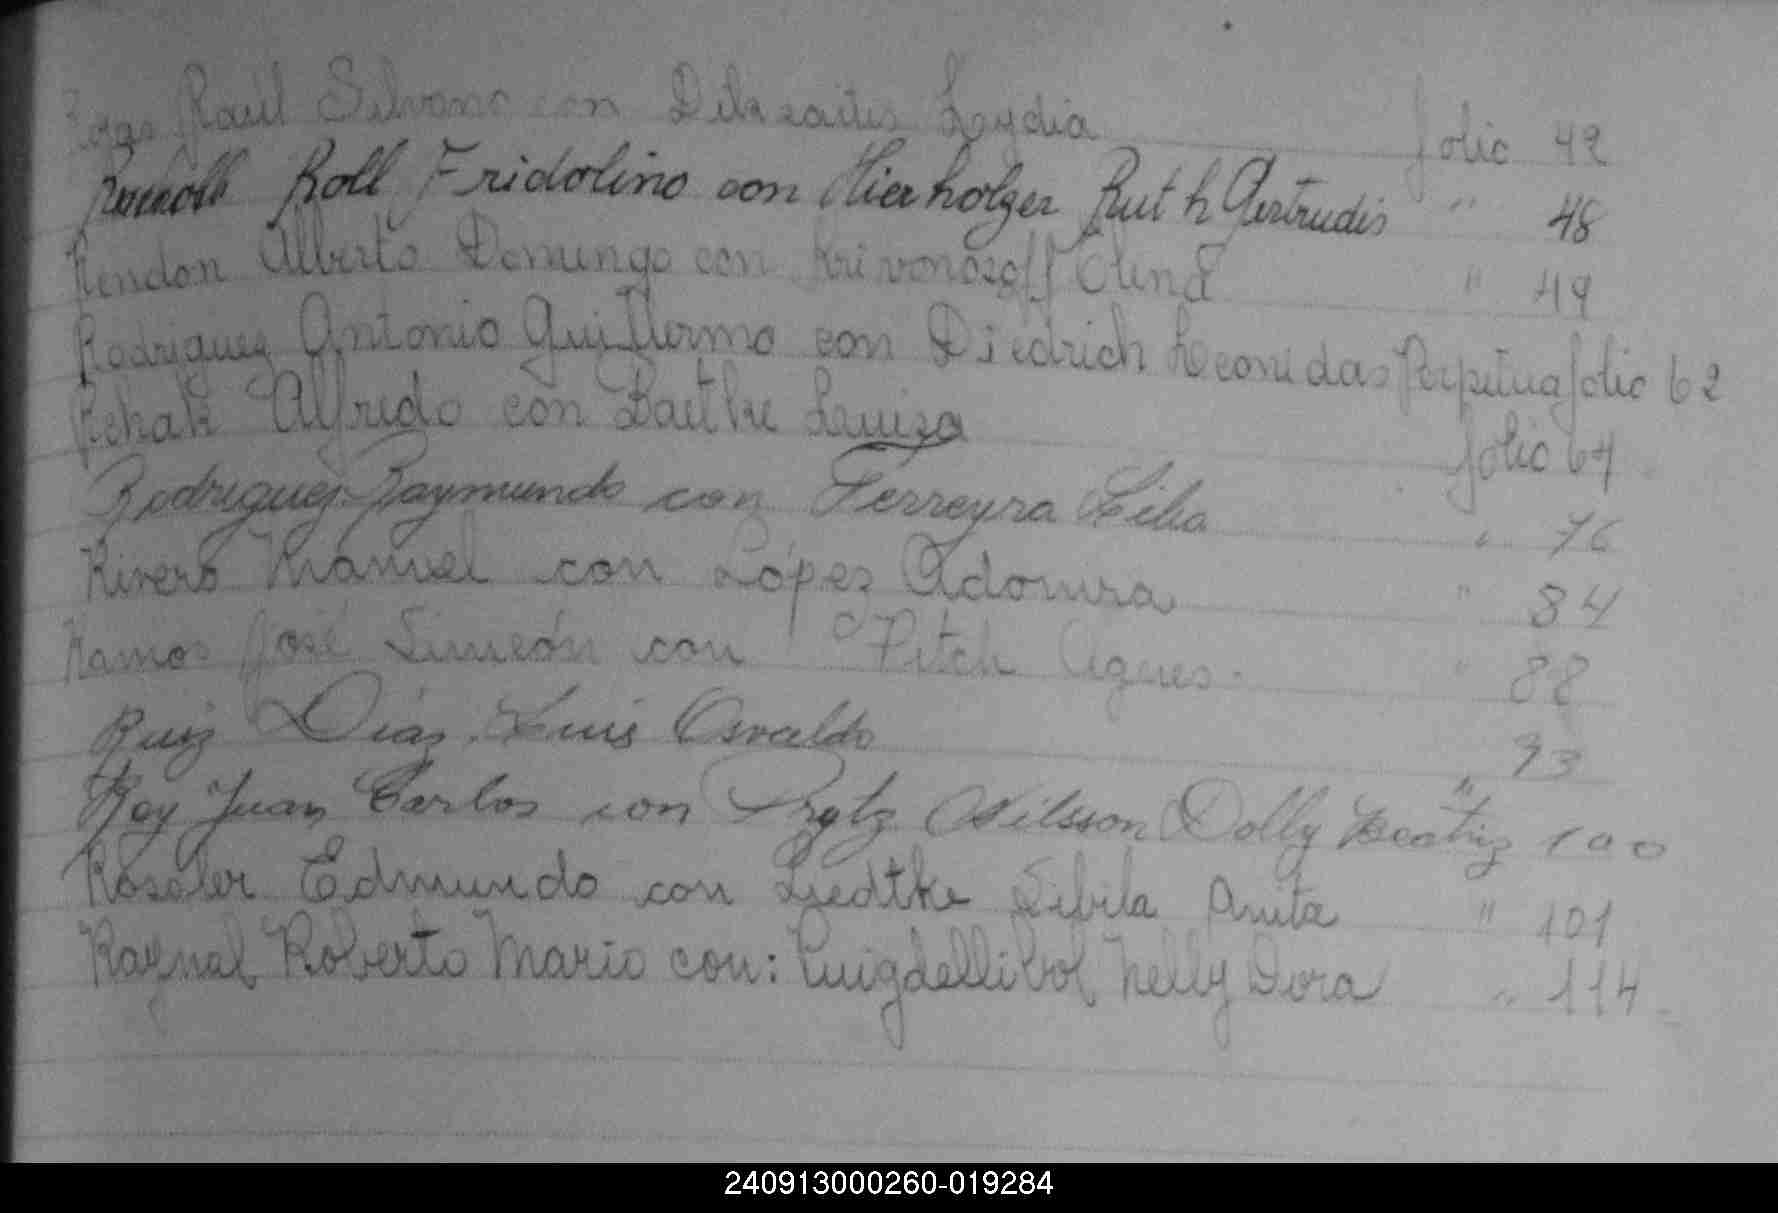 Raúl Silvano con Lydia folio 42
Roll Fridolino con Hierholzer Ruth Gertrudis " 48
Rendon Alberto Domingo con Krivonozoff " 49
Rodriguez Antonio Guillermo con Diedrich Leonidas Perpetua folio 62
Rehak Alfredo con Baethke Luiza folio 64
Rodriguez Raymundo con Ferreyra Lilia " 76
Rivero Manuel con López Adonira " 84
Ramos José Simeón con Pitch Agnes. " 88
Ruiz Diaz Luis Osvaldo 93
Roy Juan Carlos con Nilsson Dolly Beatriz " 100
Roseler Edmundo con Liedtke Sibila Anita " 101
Raynal Roberto Mario con: Puigdellibol Nelly Dora " 114
240913000260-019284